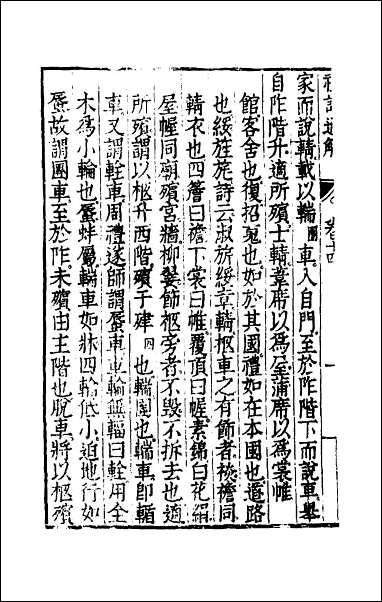 禮記通解 卷十四
家而說輤載以輲團車入自門至於阼階下而說車舉
自阼階升適所殯士輤葦席以為屋蒲席以為裳帷
館客舍也復招䰟也如於其國禮如在本國也道路
也綏旌旄詩云淑旂綏章輤柩車之有飾者裧襜同
輤衣也四簷曰襜下裳曰帷覆頂曰幄素錦白花絹
屋幄同廟殯宮牆柳翣飾柩旁者不毀不拆去也適
所殯謂以柩升西階殯于肂四也輲團也輲車即輴
車又謂輇車周禮遂師謂蜃車車輪無輻曰輇用全
木為小輪也蜃蚌屬輲車如牀四輪低小迫地行如
蜃故謂團車至於阼未殯由主階也脫車將以柩殯